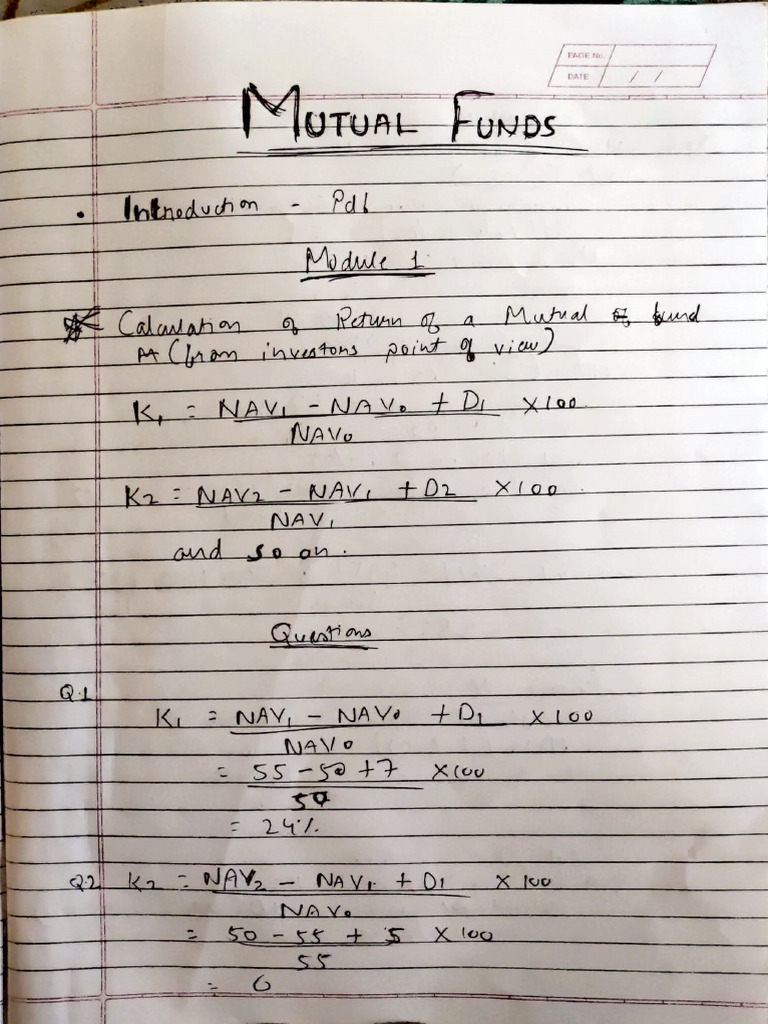 PAGE No.
DATE / /
MUTUAL FUNDS
• Introduction - Pdf
Module 1
Calculation of Return of a Mutual fund
(from investors point of view)
K₁ = NAV₁ - NAV₀ + D₁ × 100
NAV₀
K2 = NAV2 - NAV₁ + D2 × 100
NAV₁
and so on.
Questions
Q.1
K₁ = NAV₁ - NAV₀ + D₁ × 100
NAV₀
= 55 - 50 + 7 × 100
50
= 24%
Q.2 K2 = NAV₂ - NAV₁ + D₁ × 100
NAV₀
= 50 - 55 + 5 × 100
55
= 0